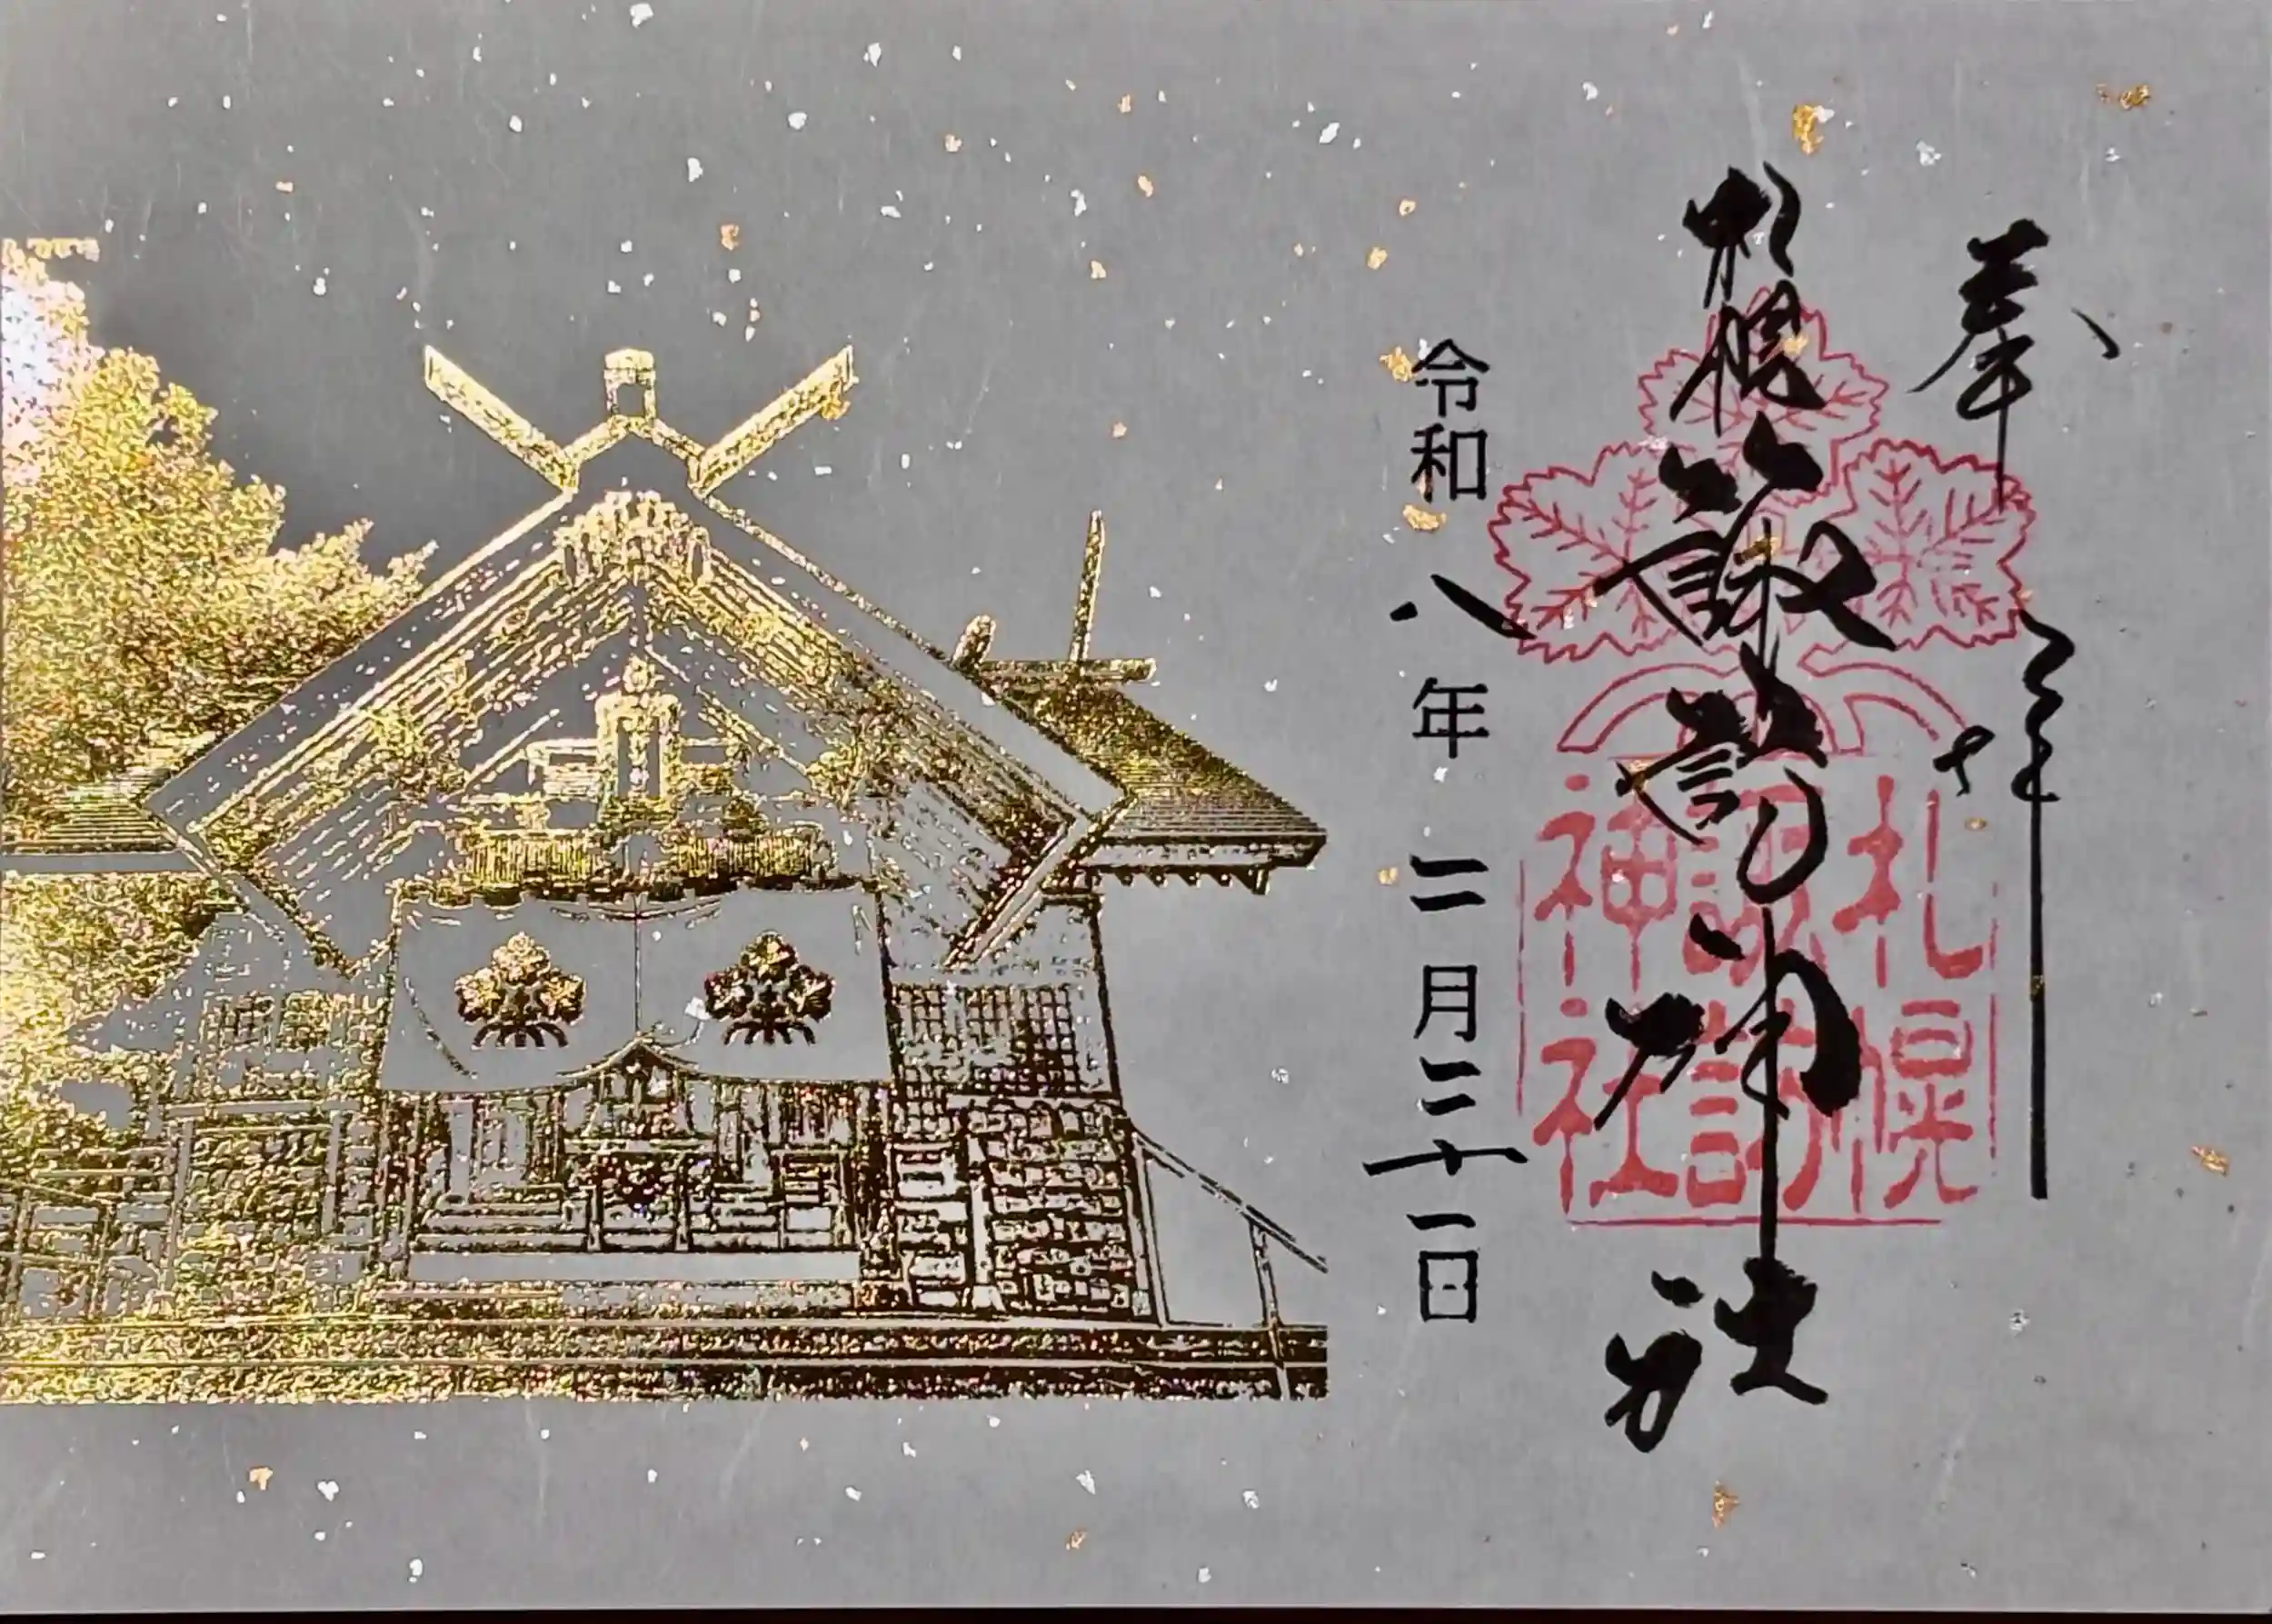 奉拝
札幌諏訪神社
札幌
諏訪
神社
令和八年三月二十一日